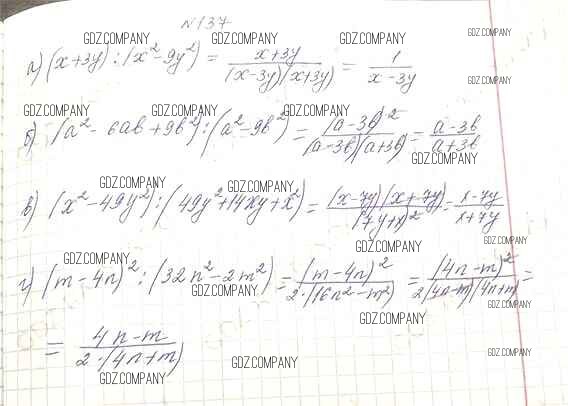 №137
GDZ.COMPANY GDZ.COMPANY GDZ.COMPANY GDZ.COMPANY
а) (x+3y) : (x²-9y²) = (x+3y)/((x-3y)(x+3y)) = 1/(x-3y)
GDZ.COMPANY
GDZ.COMPANY GDZ.COMPANY GDZ.COMPANY
б) (a²-6ab+9b²) : (a²-9b²) = (a-3b)²/((a-3b)(a+3b)) = (a-3b)/(a+3b)
GDZ.COMPANY
GDZ.COMPANY GDZ.COMPANY
в) (x²-49y²) : (49y²+14xy+x²) = ((x-7y)(x+7y))/(7y+x)² = (x-7y)/(x+7y)
GDZ.COMPANY GDZ.COMPANY GDZ.COMPANY
г) (m-4n)² : (32n²-2m²) = (m-4n)²/(2·(16n²-m²)) = (4n-m)²/(2(4n-m)(4n+m)) =
GDZ.COMPANY GDZ.COMPANY
GDZ.COMPANY
= (4n-m)/(2·(4n+m))
GDZ.COMPANY GDZ.COMPANY GDZ.COMPANY